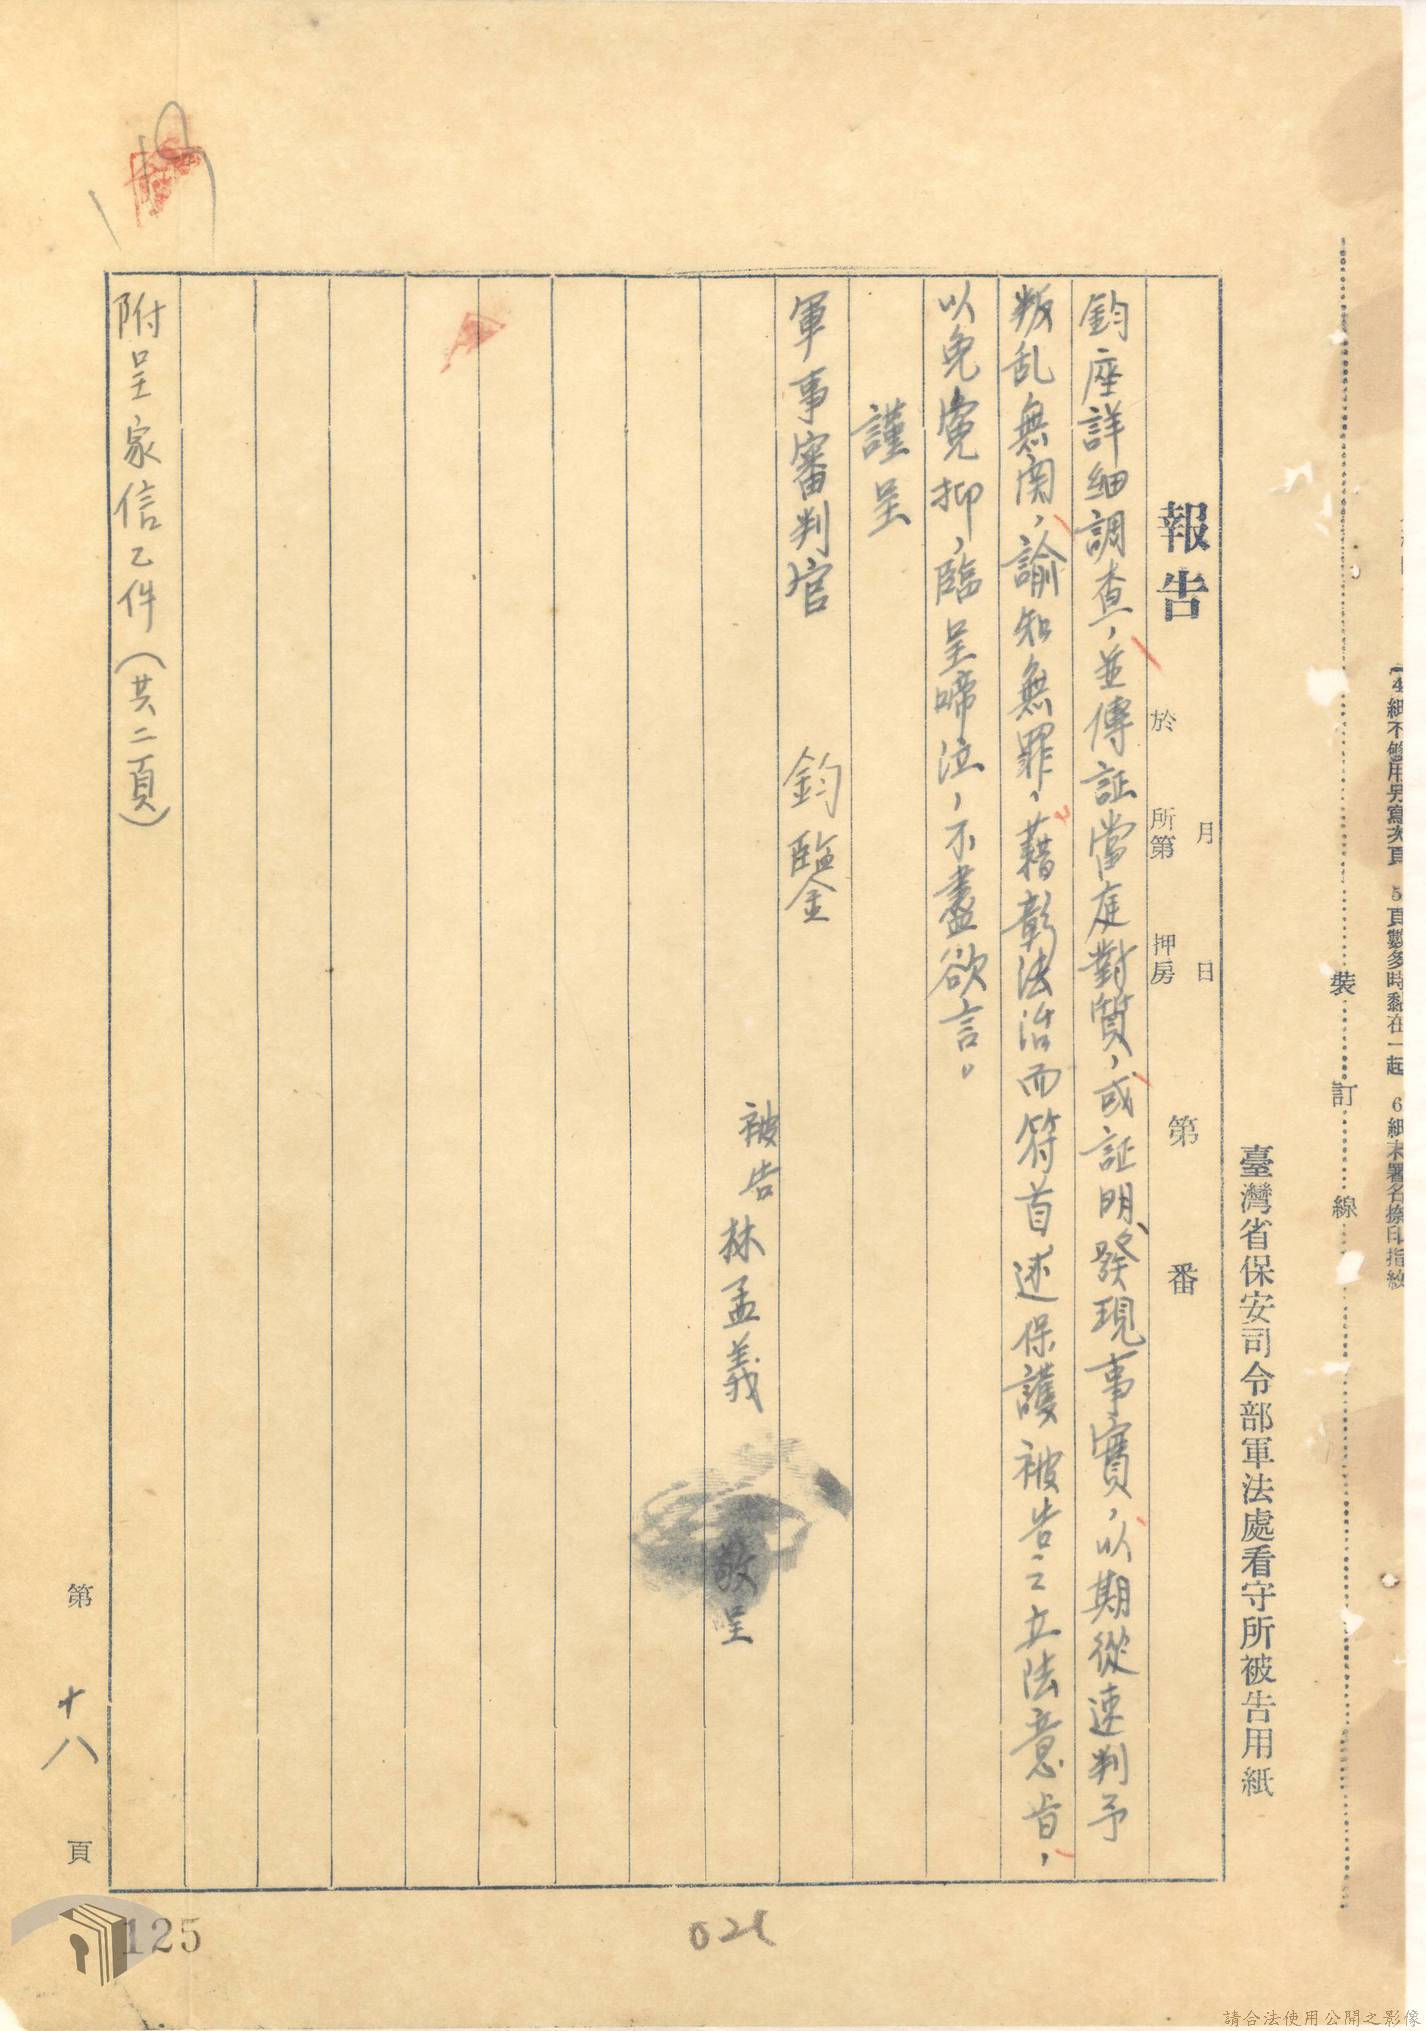 4 紙不夠用另寫次頁 5 頁數多時黏在一起 6 紙末署名捺印指紋
裝訂線
臺灣省保安司令部軍法處看守所被告用紙
報告
月 日
於 所第 押房
第 番
鈞座詳細調查，並傳証當庭對質，或証明、發現事實，以期從速判予
叛乱無関，諭知無罪，藉彰法治而符首述保護被告之立法意旨，
以免寃抑，臨呈啼泣，不盡欲言。
謹呈
軍事審判官 鈞鑒
被告 林孟義 敬呈
附呈家信乙件（共二頁）
第 十八 頁
125
請合法使用公開之影像